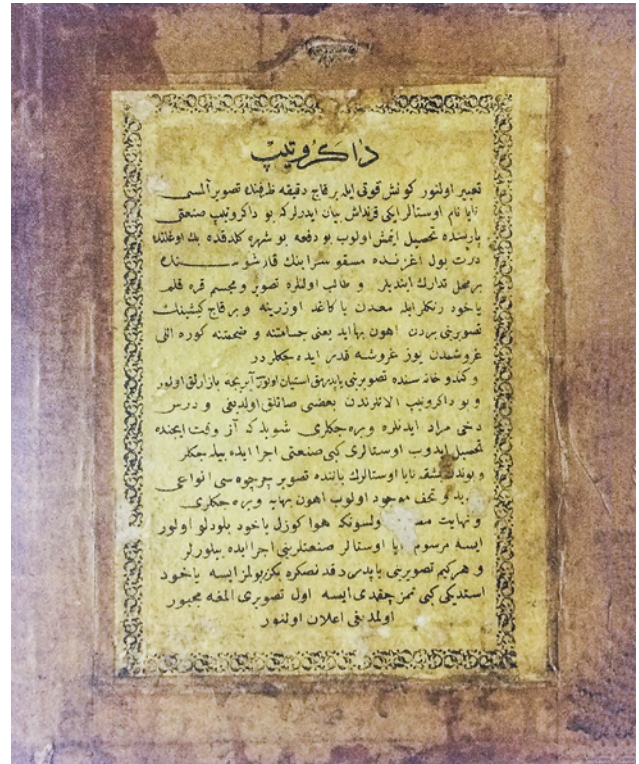 داكروتيپ
تعبير اولنور كونش قوتى ايله برقاچ دقيقه ظرفنده تصوير آلمسى
نايا نام اوستالر ايكى قرنداش بيان ايدرلركه بو داكروتيپ صنعتى
پاريسده تحصيل ايتمش اولوب بو دفعه بو شهره كلدكده بك اوغلنده
درت يول اغزنده مسقو سراينك قارشوسنده
بر محل تدارك ايتديلر و طالب اولنلره تصوير و مجسم قره قلم
ياخود رنكلر ايله معدن يا كاغد اوزرينه و برقاچ كيشينك
تصويرينى بردن اهون بهايه يعنى جسامتنه و ضحمتنه كوره اللى
غروشدن يوز غروشه قدر ايده جكلر در
و كندو خانه سنده تصويرينى ياپديرمق استيان اولور آيريجه بازارلق اولور
و بو داكروتيپ الاتلرندن بعضى صاتلق اولديغى و درس
دخى مراد ايدنلره ويره جكلرى شويله كه آز وقت ايچنده
تحصيل ايدوب اوستالرى كبى صنعتى اجرا ايده بيله جكلر
و بوندن بشقه نايا اوستالرك ياننده تصوير چرچوه سى انواعى
و تحف موجود اولوب اهون بهايه ويره جكلرى
و نهايت اولسونكه هوا كوزل ياخود بلوطلو اولور
ايسه مرسوم نايا اوستالر صنعتلرينى اجرا ايده بيلورلر
و هركيم تصويرينى ياپديردقدنصكره بكزه يولمز ايسه ياخود
استديكى كبى تميز چقمدى ايسه اول تصويرى المغه مجبور
اولمديغى اعلان اولنور